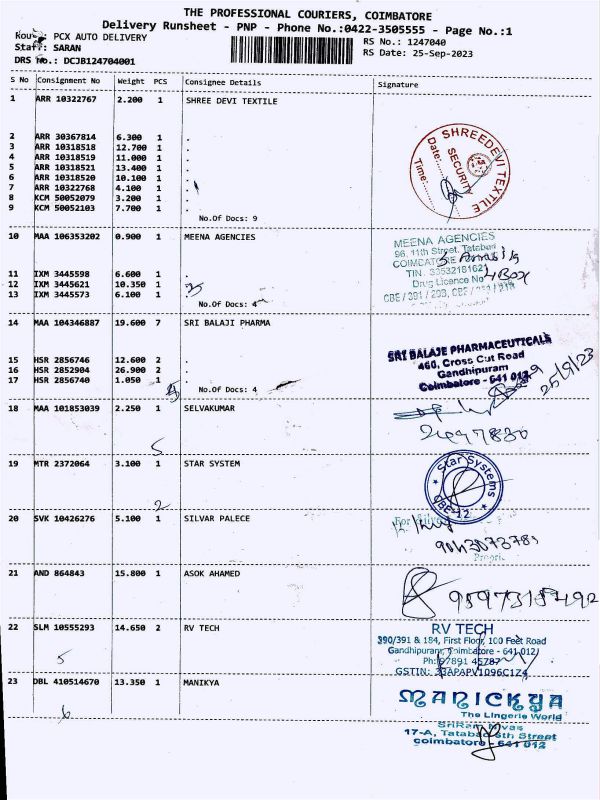 THE PROFESSIONAL COURIERS, COIMBATORE
Delivery Runsheet - PNP - Phone No.:0422-3505555 - Page No.:1
PCX AUTO DELIVERY
RS No.: 1247040
Staff: SARAN
RS Date: 25-Sep-2023
DRS No.: DCJB124704001
S No Consignment No Weight PCS Consignee Details Signature
1 ARR 10322767 2.200 1 SHREE DEVI TEXTILE
2 ARR 30367814 6.300 1 .
3 ARR 10318518 12.700 1 .
4 ARR 10318519 11.000 1 .
5 ARR 10318521 13.400 1 .
6 ARR 10318520 10.100 1 .
7 ARR 10322768 4.100 1 .
8 KCM 50052079 3.200 1 .
9 KCM 50052103 7.700 1 .
No.Of Docs: 9
SHREEDEVI TEXTILE
SECURITY
Date:
Time:
10 MAA 106353202 0.900 1 MEENA AGENCIES
11 IXM 3445598 6.600 1 .
12 IXM 3445621 10.350 1 .
13 IXM 3445573 6.100 1 .
No.Of Docs: 4
MEENA AGENCIES
96, 11th Street, Tatabad
COIMBATORE
TIN. 33532181621
Drug Licence No
4 Box
CBE / 391 / 20B, CBE /
14 MAA 104346887 19.600 7 SRI BALAJI PHARMA
15 HSR 2856746 12.600 2 .
16 HSR 2852904 26.900 2 .
17 HSR 2856740 1.050 1 .
No.Of Docs: 4
SRI BALAJE PHARMACEUTICALS
460, Cross Cut Road
Gandhipuram
Coimbatore - 641 012
25/9/23
18 MAA 101853039 2.250 1 SELVAKUMAR
5
19 MTR 2372064 3.100 1 STAR SYSTEM
2
Star Systems
CBE-12
20 SVK 10426276 5.100 1 SILVAR PALECE
For Silver
21 AND 864843 15.800 1 ASOK AHAMED
22 SLM 10555293 14.650 2 RV TECH
5
RV TECH
390/391 & 184, First Floor, 100 Feet Road
Gandhipuram, Coimbatore - 641 012
Ph: 97891 45787
GSTIN: 33APAPV1096C1Z4
23 DBL 410514670 13.350 1 MANIKYA
6
MANICKYA
The Lingerie World
17-A, Tatabad 6th Street
coimbatore - 641 012